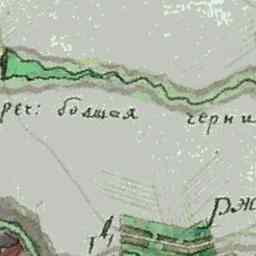 реч: болшая черни
рж